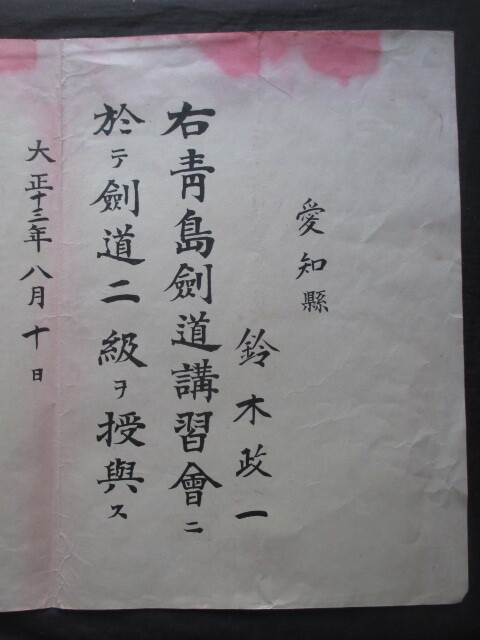 愛知縣
鈴木政一
右青島劍道講習會ニ
於テ劍道二級ヲ授與ス
大正十三年八月十日